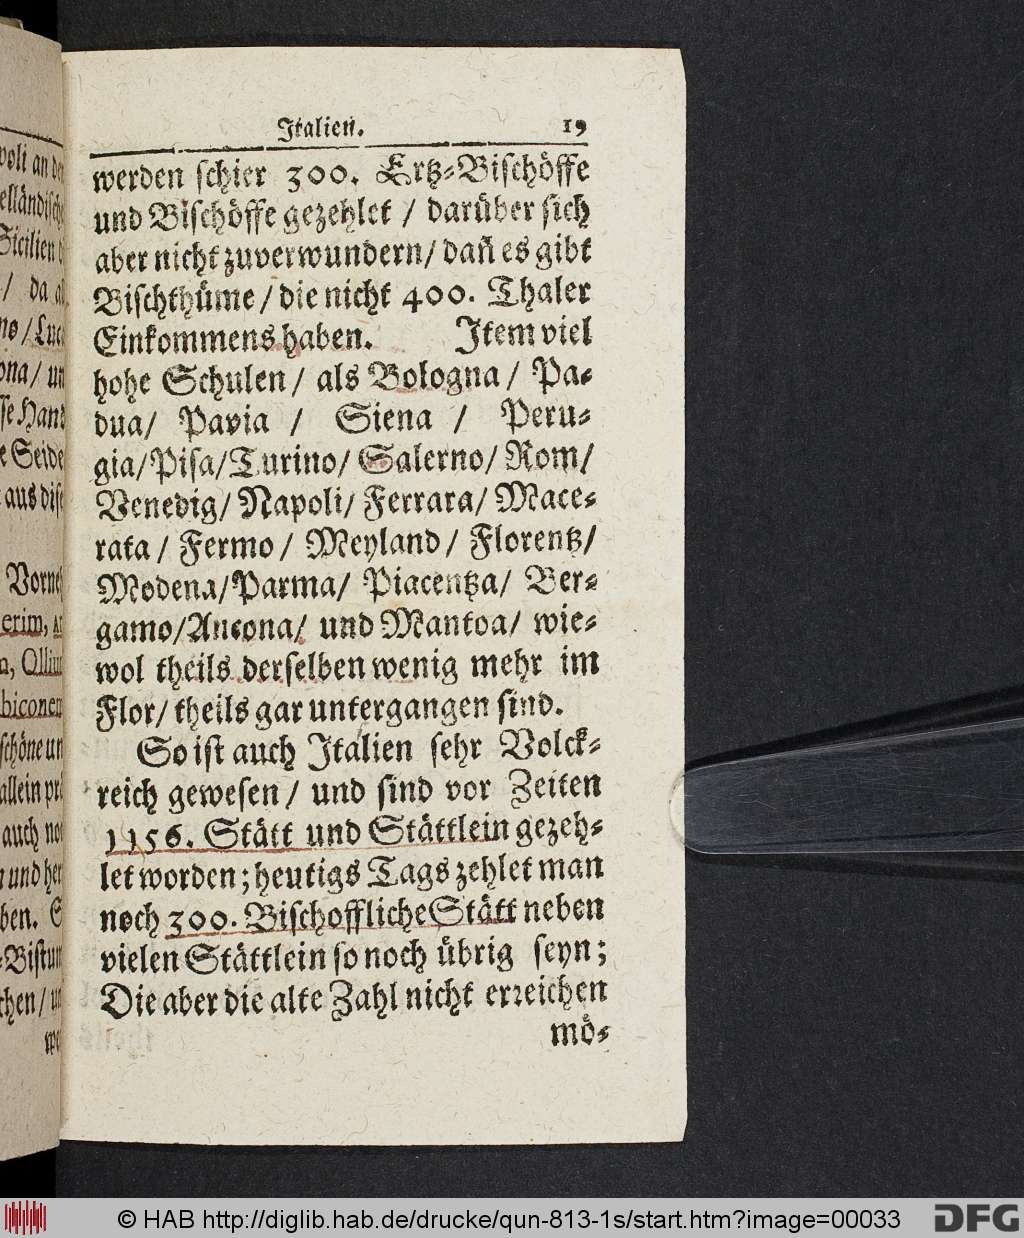 Italien. 19
werden schier 300. Ertz-Bischöffe
und Bischöffe gezehlet / darüber sich
aber nicht zuverwundern / dañ es gibt
Bischthüme / die nicht 400. Thaler
Einkommens haben. Item viel
hohe Schulen / als Bologna / Pa-
dua / Pavia / Siena / Peru-
gia / Pisa / Turino / Salerno / Rom /
Venedig / Napoli / Ferrara / Mace-
rata / Fermo / Meyland / Florentz /
Modena / Parma / Piacentza / Ber-
gamo / Ancona / und Mantoa / wie-
wol theils derselben wenig mehr im
Flor / theils gar untergangen sind.
So ist auch Italien sehr Volck-
reich gewesen / und sind vor Zeiten
1156. Stätt und Stättlein gezeh-
let worden; heutigs Tags zehlet man
noch 300. Bischoffliche Stätt neben
vielen Stättlein so noch übrig seyn;
Die aber die alte Zahl nicht erreichen
mö-
© HAB http://diglib.hab.de/drucke/qun-813-1s/start.htm?image=00033
DFG